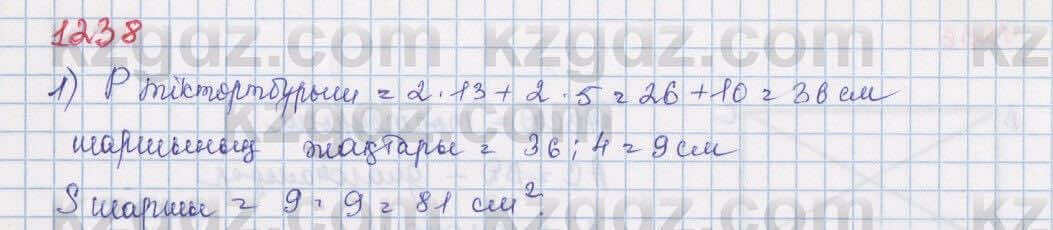 1238
1) P тіктөртбұрыш = 2 · 13 + 2 · 5 = 26 + 10 = 36 см
шаршының жақтары = 36 : 4 = 9 см
S шаршы = 9 · 9 = 81 см².
kzgdz.com kzgdz.com